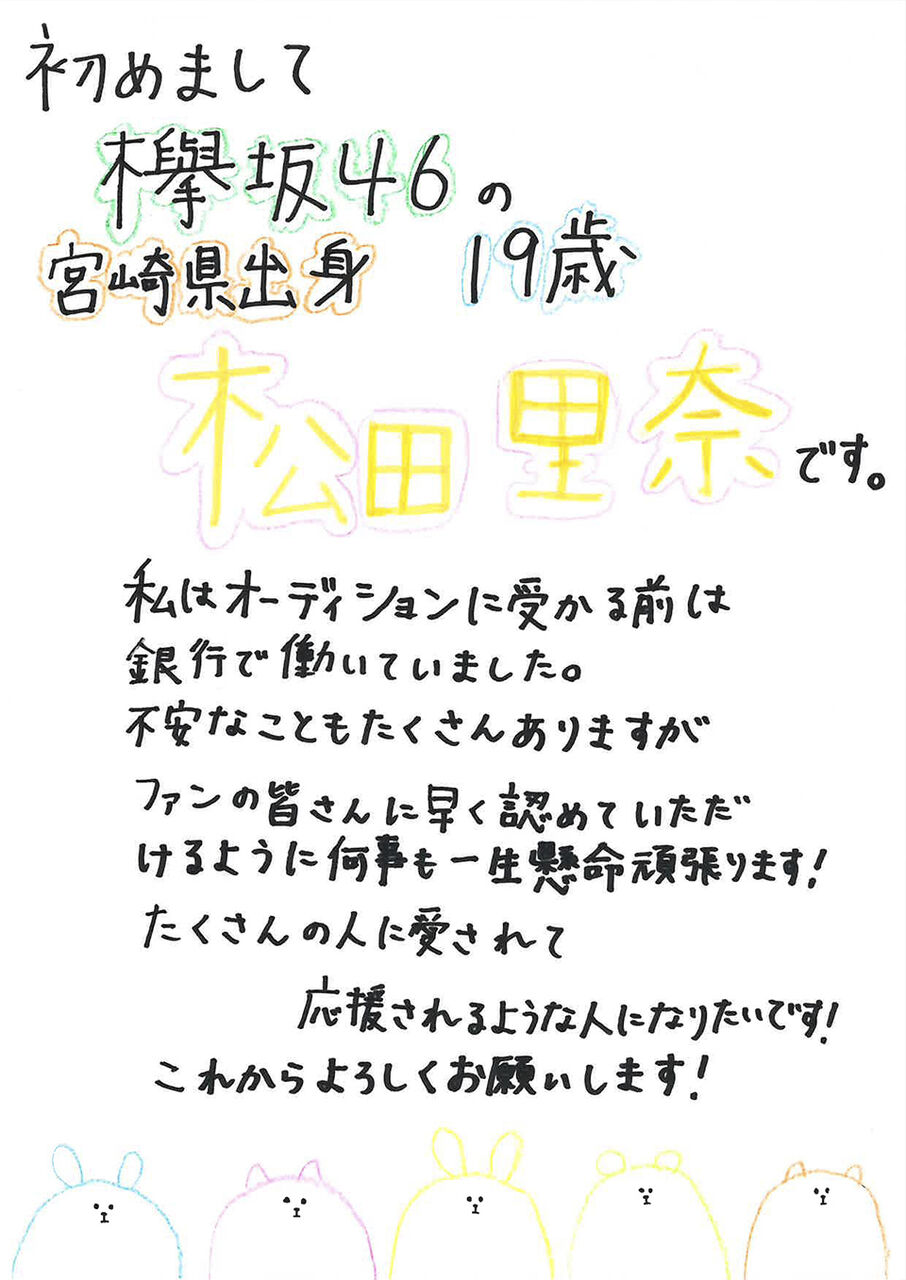 初めまして
欅坂46の
宮崎県出身 19歳
松田里奈です。
私はオーディションに受かる前は
銀行で働いていました。
不安なこともたくさんありますが
ファンの皆さんに早く認めていただだ
けるように何事も一生懸命頑張ります!
たくさんの人に愛されて
応援されるような人になりたいです!
これからよろしくお願いします!